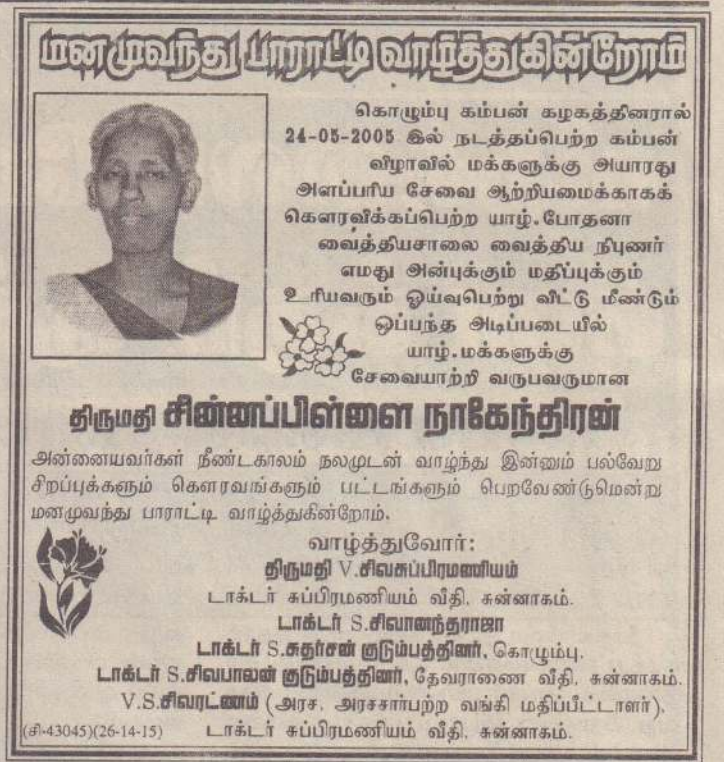 மனமுவந்து பாராட்டி வாழ்த்துகின்றோம்
கொழும்பு கம்பன் கழகத்தினரால்
24-05-2005 இல் நடத்தப்பெற்ற கம்பன்
விழாவில் மக்களுக்கு அயாரது
அளப்பரிய சேவை ஆற்றியமைக்காகக்
கௌரவிக்கப்பெற்ற யாழ்.போதனா
வைத்தியசாலை வைத்திய நிபுணர்
எமது அன்புக்கும் மதிப்புக்கும்
உரியவரும் ஓய்வுபெற்று விட்டு மீண்டும்
ஒப்பந்த அடிப்படையில்
யாழ்.மக்களுக்கு
சேவையாற்றி வருபவருமான
திருமதி சின்னப்பிள்ளை நாகேந்திரன்
அன்னையவர்கள் நீண்டகாலம் நலமுடன் வாழ்ந்து இன்னும் பல்வேறு
சிறப்புக்களும் கௌரவங்களும் பட்டங்களும் பெறவேண்டுமென்று
மனமுவந்து பாராட்டி வாழ்த்துகின்றோம்.
வாழ்த்துவோர்:
திருமதி V.சிவசுப்பிரமணியம்
டாக்டர் சுப்பிரமணியம் வீதி, சுன்னாகம்.
டாக்டர் S.சிவானந்தராஜா
டாக்டர் S.சுதர்சன் குடும்பத்தினர், கொழும்பு.
டாக்டர் S.சிவபாலன் குடும்பத்தினர், தேவராணை வீதி, சுன்னாகம்.
V.S.சிவரட்ணம் (அரச, அரசசார்பற்ற வங்கி மதிப்பீட்டாளர்),
(சி-43045)(26-14-15) டாக்டர் சுப்பிரமணியம் வீதி, சுன்னாகம்.